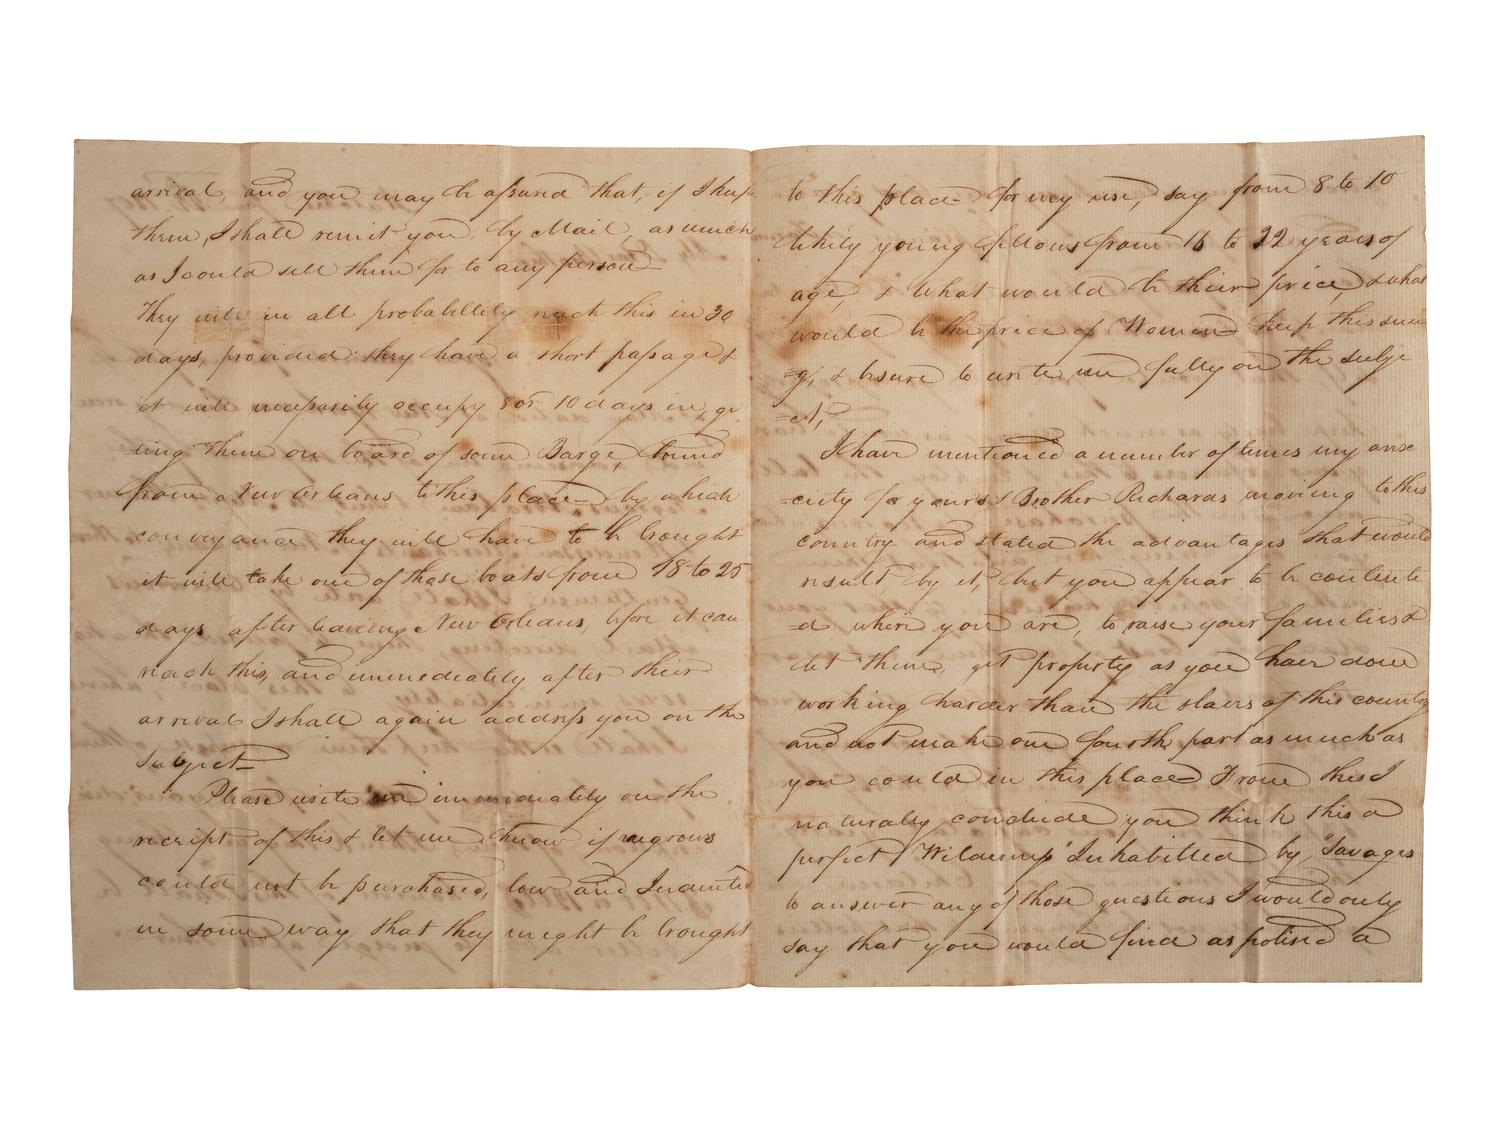 arrival and you may be assured that, if I keep
them, I shall remit you by Mail, as much
as I could sell them for to any person
They will in all probabillity reach this in 30
days, provided they have a short passage &
it will necessarily occupy 8 or 10 days in, ge
ting them on board of some Barge, bound
from New Orleans to this place by which
conveyance they will have to be brought
it will take one of those boats from 18 to 25
days, after leaving New Orleans, before it can
reach this, and immediately after their
arrival I shall again address you on the
Subject
Please write me immediately on the
receipt of this & let me know if negrows
could not be purchased, low and Indented
in some way that they might be brought
to this place for my use, say from 8 to 10
likily young fellows from 16 to 22 years of
age, & what would be their price, & what
would be the price of Women keep this sec
=y, & be sure to write me fully on the subje
=ct,
I have mentioned a number of times my anx
=eity for yours & Brother Richards moving to this
country and stated the advantages that would
result by it, but you appear to be contente
=d where you are, to raise your families &
let them, get property as you have done
working harder than the slaves of this country
and not make one fourth part as much as
you could in this place From this I
naturally conclude you think this a
perfect "Wilderness" Inhabitted by, "Savages
to answer any of those questions I would only
say that you would find as polised a